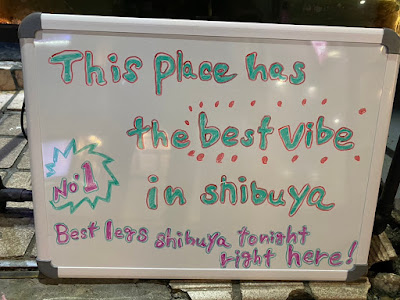 This place has
the best vibe
No.1
in shibuya
Best legs shibuya tonight
right here!